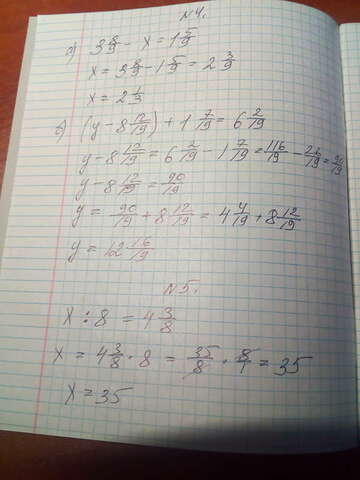 N4.
а) 3 8/9 - x = 1 5/9
x = 3 8/9 - 1 5/9 = 2 3/9
x = 2 1/3
б) (y - 8 12/19) + 1 7/19 = 6 2/19
y - 8 12/19 = 6 2/19 - 1 7/19 = 116/19 - 26/19 = 90/19
y - 8 12/19 = 90/19
y = 90/19 + 8 12/19 = 4 4/19 + 8 12/19
y = 12 16/19
N5.
x : 8 = 4 3/8
x = 4 3/8 · 8 = 35/8 · 8/1 = 35
x = 35